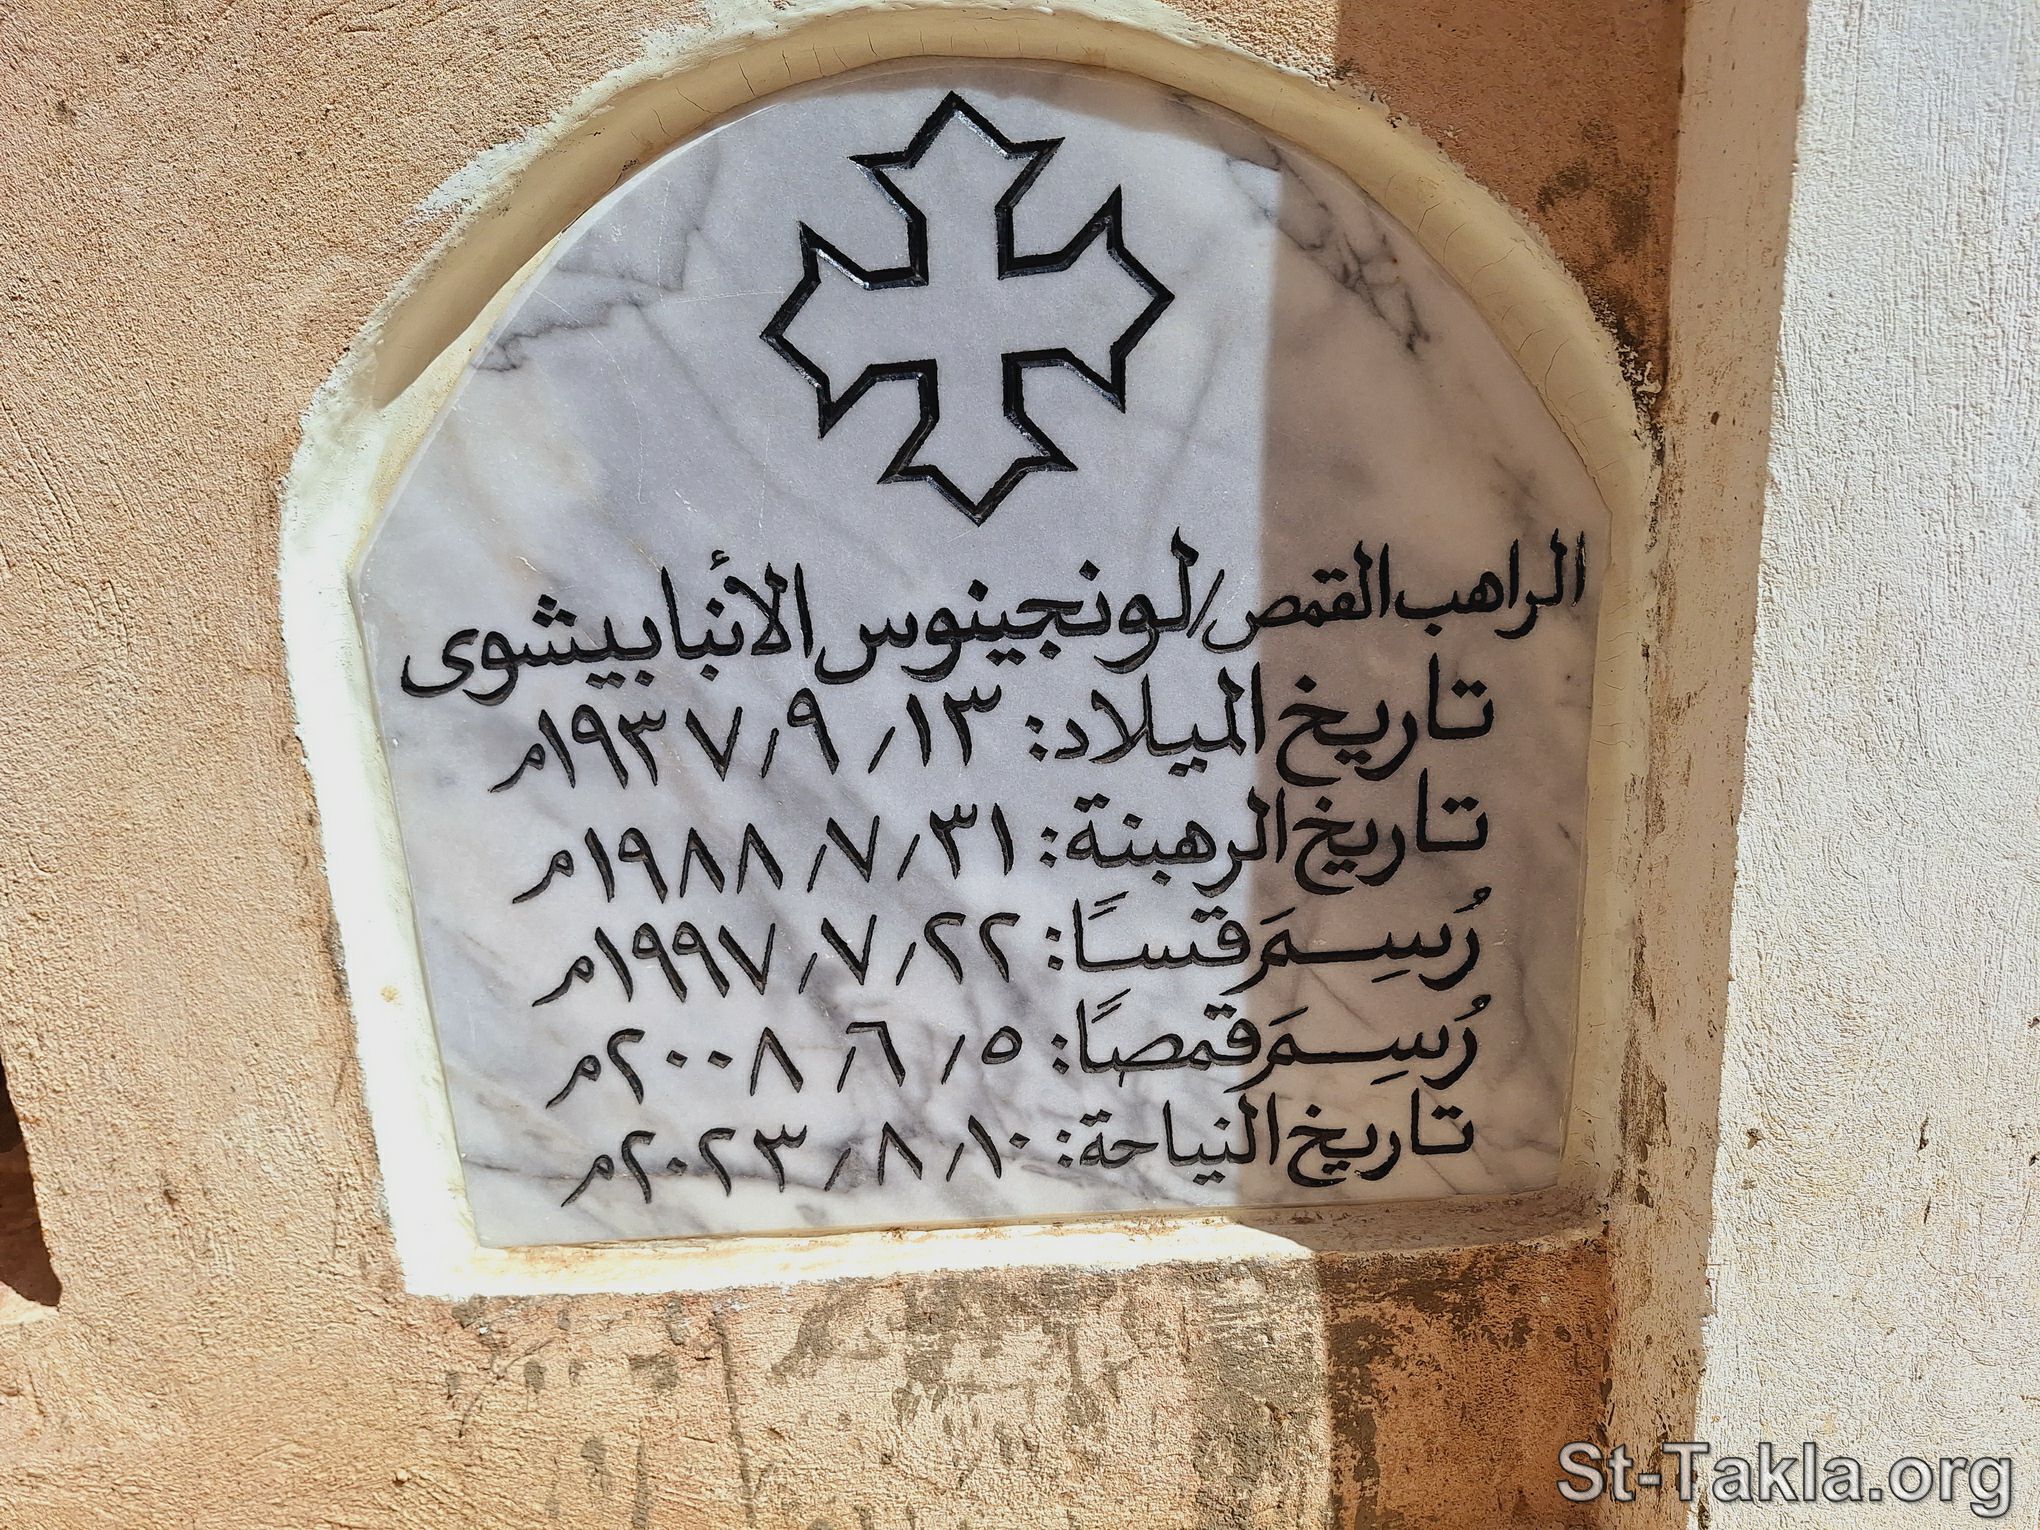 الراهب القمص/ لونجينوس الأنبا بيشوى
تاريخ الميلاد: ١٣/ ٩/ ١٩٣٧م
تاريخ الرهبنة: ٣١/ ٧/ ١٩٨٨م
رُسِمَ قسـاً: ٢٢/ ٧/ ١٩٩٧م
رُسِمَ قمصاً: ٥/ ٦/ ٢٠٠٨م
تاريخ النياحة: ١٠/ ٨/ ٢٠٢٣م
St-Takla.org